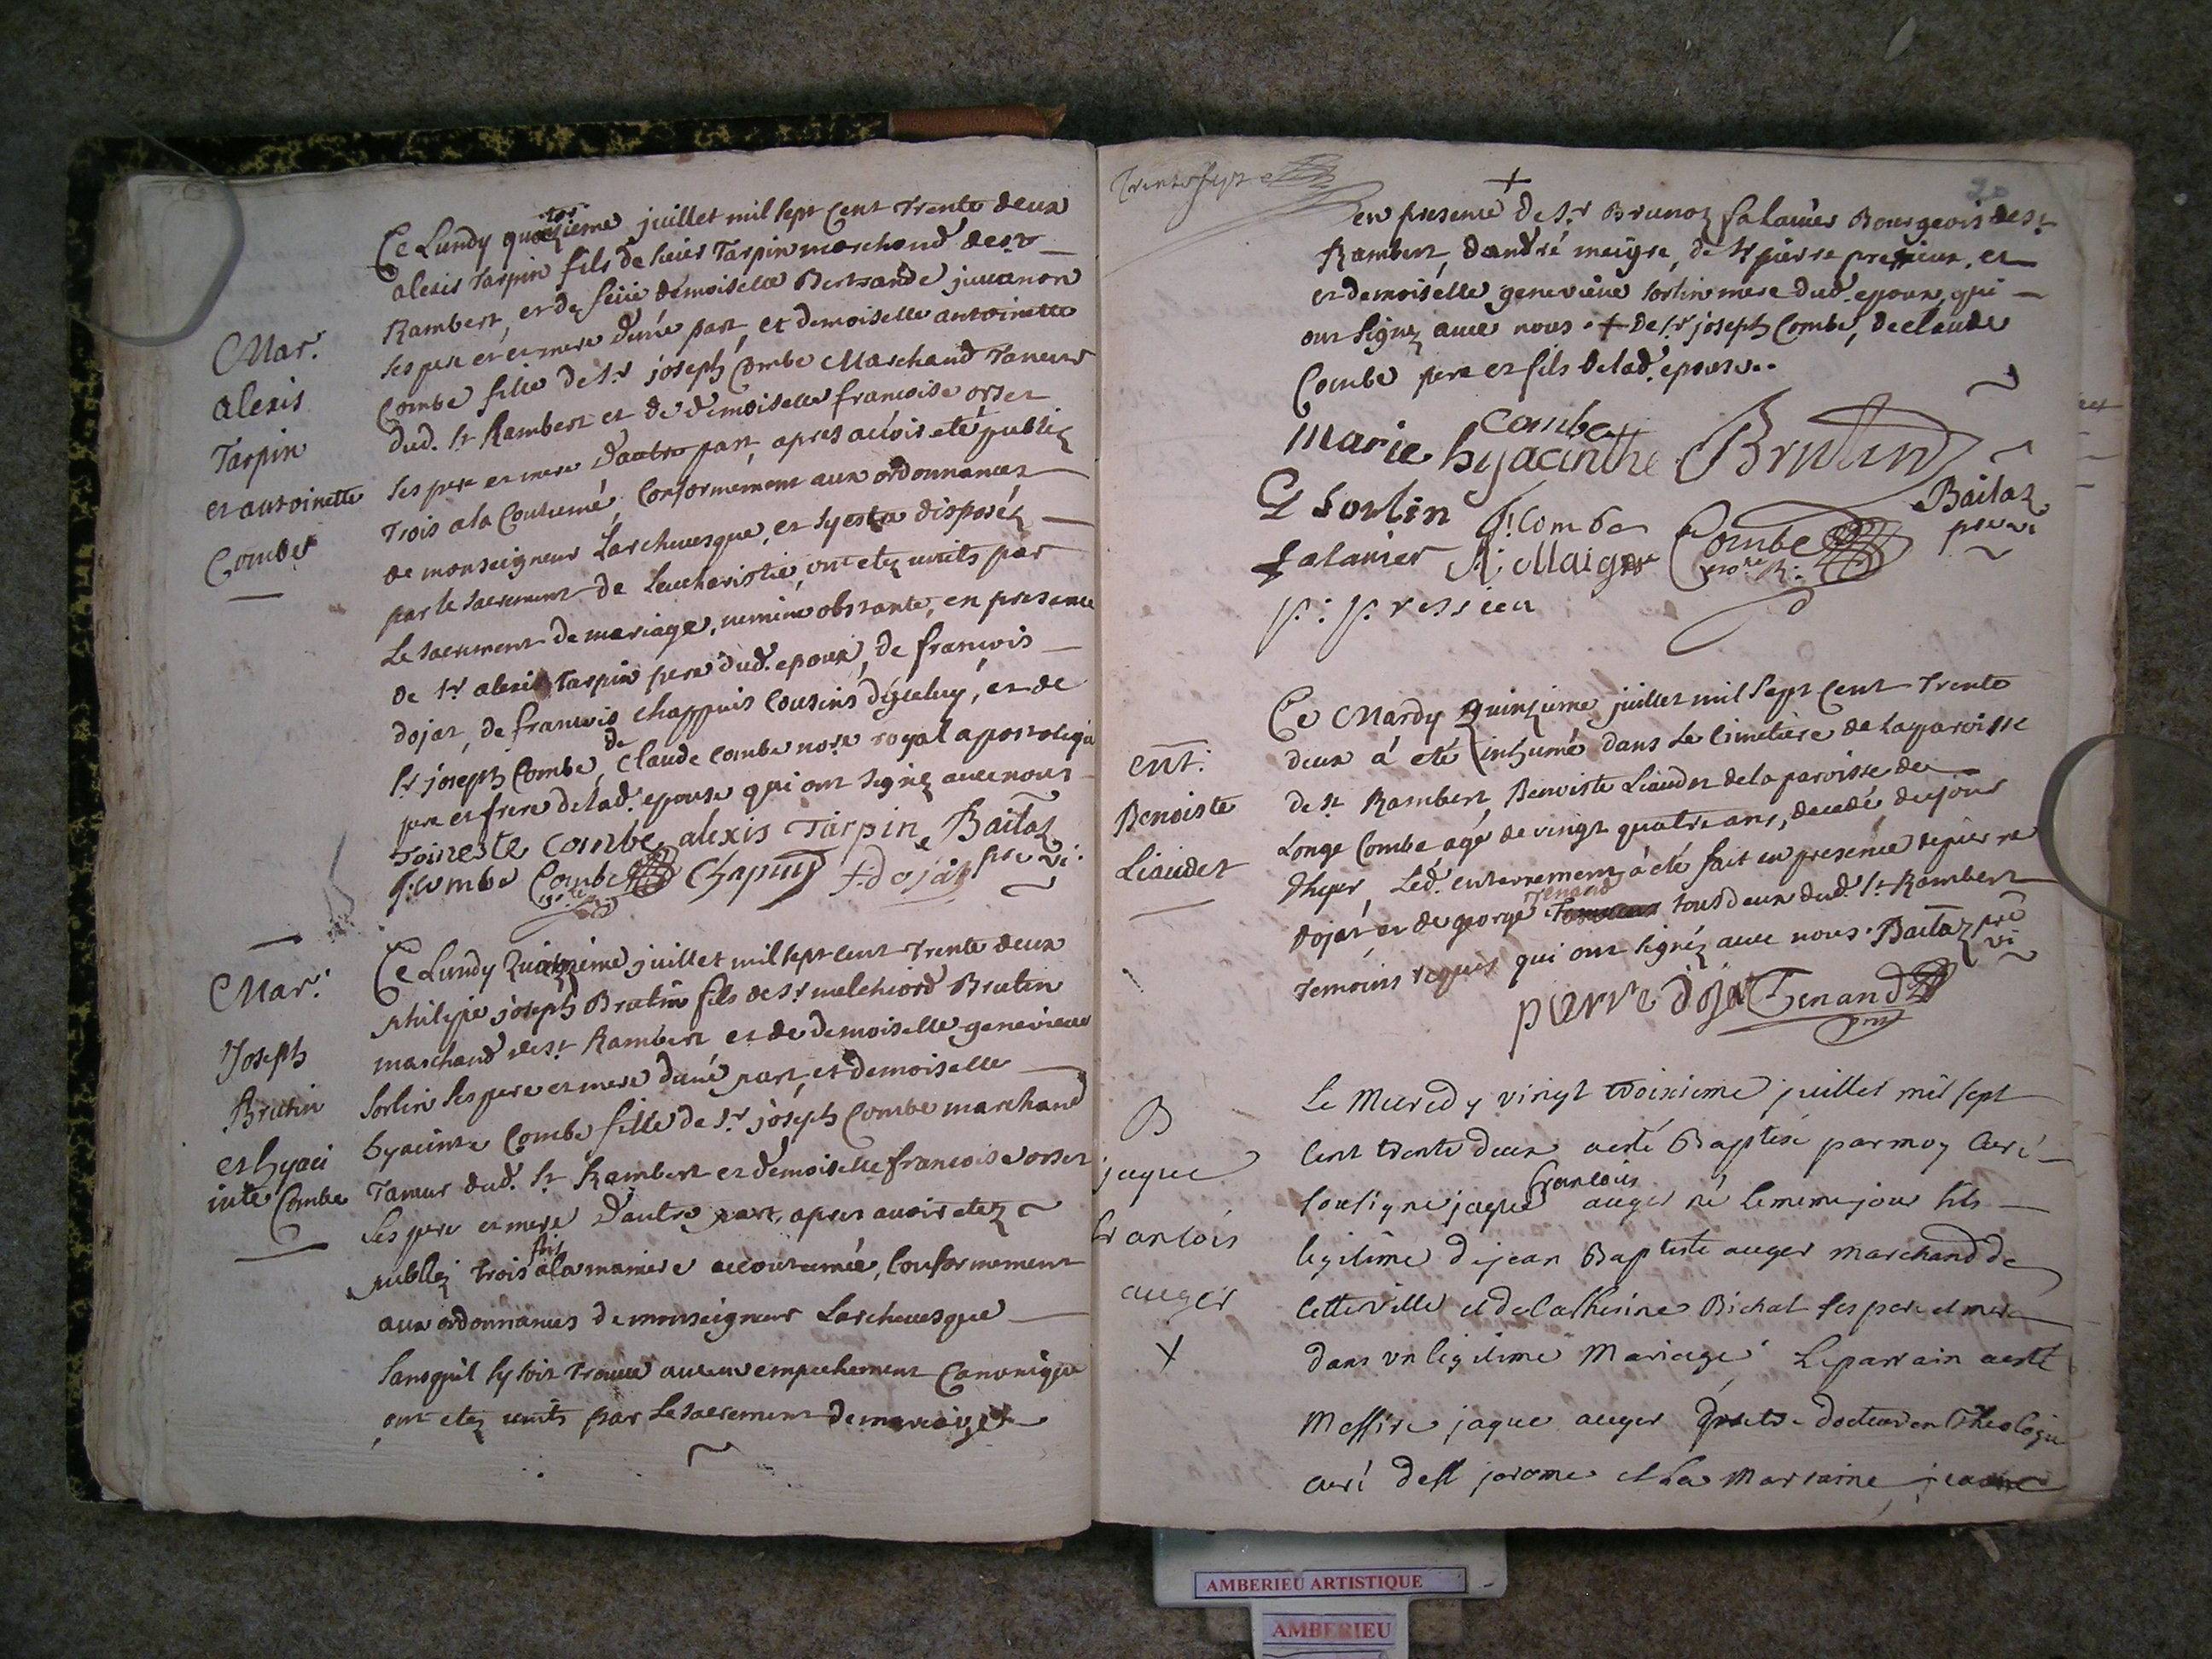 Mar.
alexis
Tarpin
et antoinette
Combe
Ce Lundy quatorzieme juillet mil sept Cent Trente deux
alexis Tarpin fils de sieur Tarpin marchand de St
Rambert, et de feüe demoiselle Bertrande juuanon
ses pere et et mere d'une part, et demoiselle antoinette
Combe fille de Sr joseph Combe Marchand Taneur
dud. St Rambert et de demoiselle francoise orset
ses pere et mere d'autre part, apres auoir eté publiz
Trois a la Coutume, Conformément aux ordonnances
de monseigneur Larcheuesque, et sy esta disposéz
par le sacrement de Leucharistie, ont etez units par
Le sacrement de mariage, nemine obstante, en presence
de Sr alexis Tarpin pere dud. epoux, de francois
dojat, de francois chappuis Cousins d'yceluy, et de
Sr joseph Combe, de Claude Combe nore royal apostoliqu
pere et frere de lad. epouse qui ont signez auec nous
Toineste combe alexis Tarpin Baitaz
j. combe Combe Chapuis f. dojat pre vi.
Mar.
Joseph
Brutin
et hyaci
inte Combe
Ce Lundy Quatorzieme juillet mil sept cent Trente deux
philipe joseph Brutin fils de Sr melchiord Brutin
marchand de St Rambert et de demoiselle geneuieue
sorlin ses pere et mere d'une part, et demoiselle
hyacinte Combe fille de Sr joseph Combe marchand
Taneur dud. St Rambert et demoiselle francoise orset
ses pere et mere d'autre part, apres auoir etez
publiez trois fois a la maniere accoutumée, Conformement
aux ordonnances de monseigneur Larcheuesque
sans quil sy soit trouué aucun empechement Canonique
ont etez units par Le sacrement de mariage
Trente sept
20
+
en presence de Sr Brunoz salauier Bourgeois de St
Rambert, d'andré meigre, de Sr pierre pressieux, et
et demoiselle geneuieue sorlin mere dud. epoux, qui
ont signez auec nous + de Sr joseph Combe, de claude
Combe pere et fils de lad. epouse..
combe
Marie hyacinthe Brutin
G Sorlin J. Combe Combe Baitaz
salauier A. Maigre pre vi
p. pressieu
ent.
Benoiste
Liaudet
Ce Mardy Quinzieme juillet mil sept Cent Trente
deux á eté inhumé dans Le Cimetière de La paroisse
de St Rambert, Benoiste Liaudet de la paroisse de
Longe Combe agé de vingt quatre ans, decedé du jour
d'hyer, Led. enterrement á eté fait en presence de pierre
dojat et de george Tenand tous deux dud. St Rambert
Temoins requis qui ont signéz auec nous. Baitaz pre vi
pierre dojat Tenand
B
jaque
francois
auger
+
Le Mecredy vingt troisieme juillet mil sept
cent trente deux aesté Baptisé par moy Curé
sousigné jaque francois auger né le meme jour fils
legitime de jean Baptiste auger marchand de
cette ville et de Catherine Bichat ses pere et mere
dans vn legitime Mariage Le parrain aesté
Messire jaque auger pretre docteur en Theologie
curé de st jerome et La Marraine jeanne
AMBERIEU ARTISTIQUE
AMBERIEU